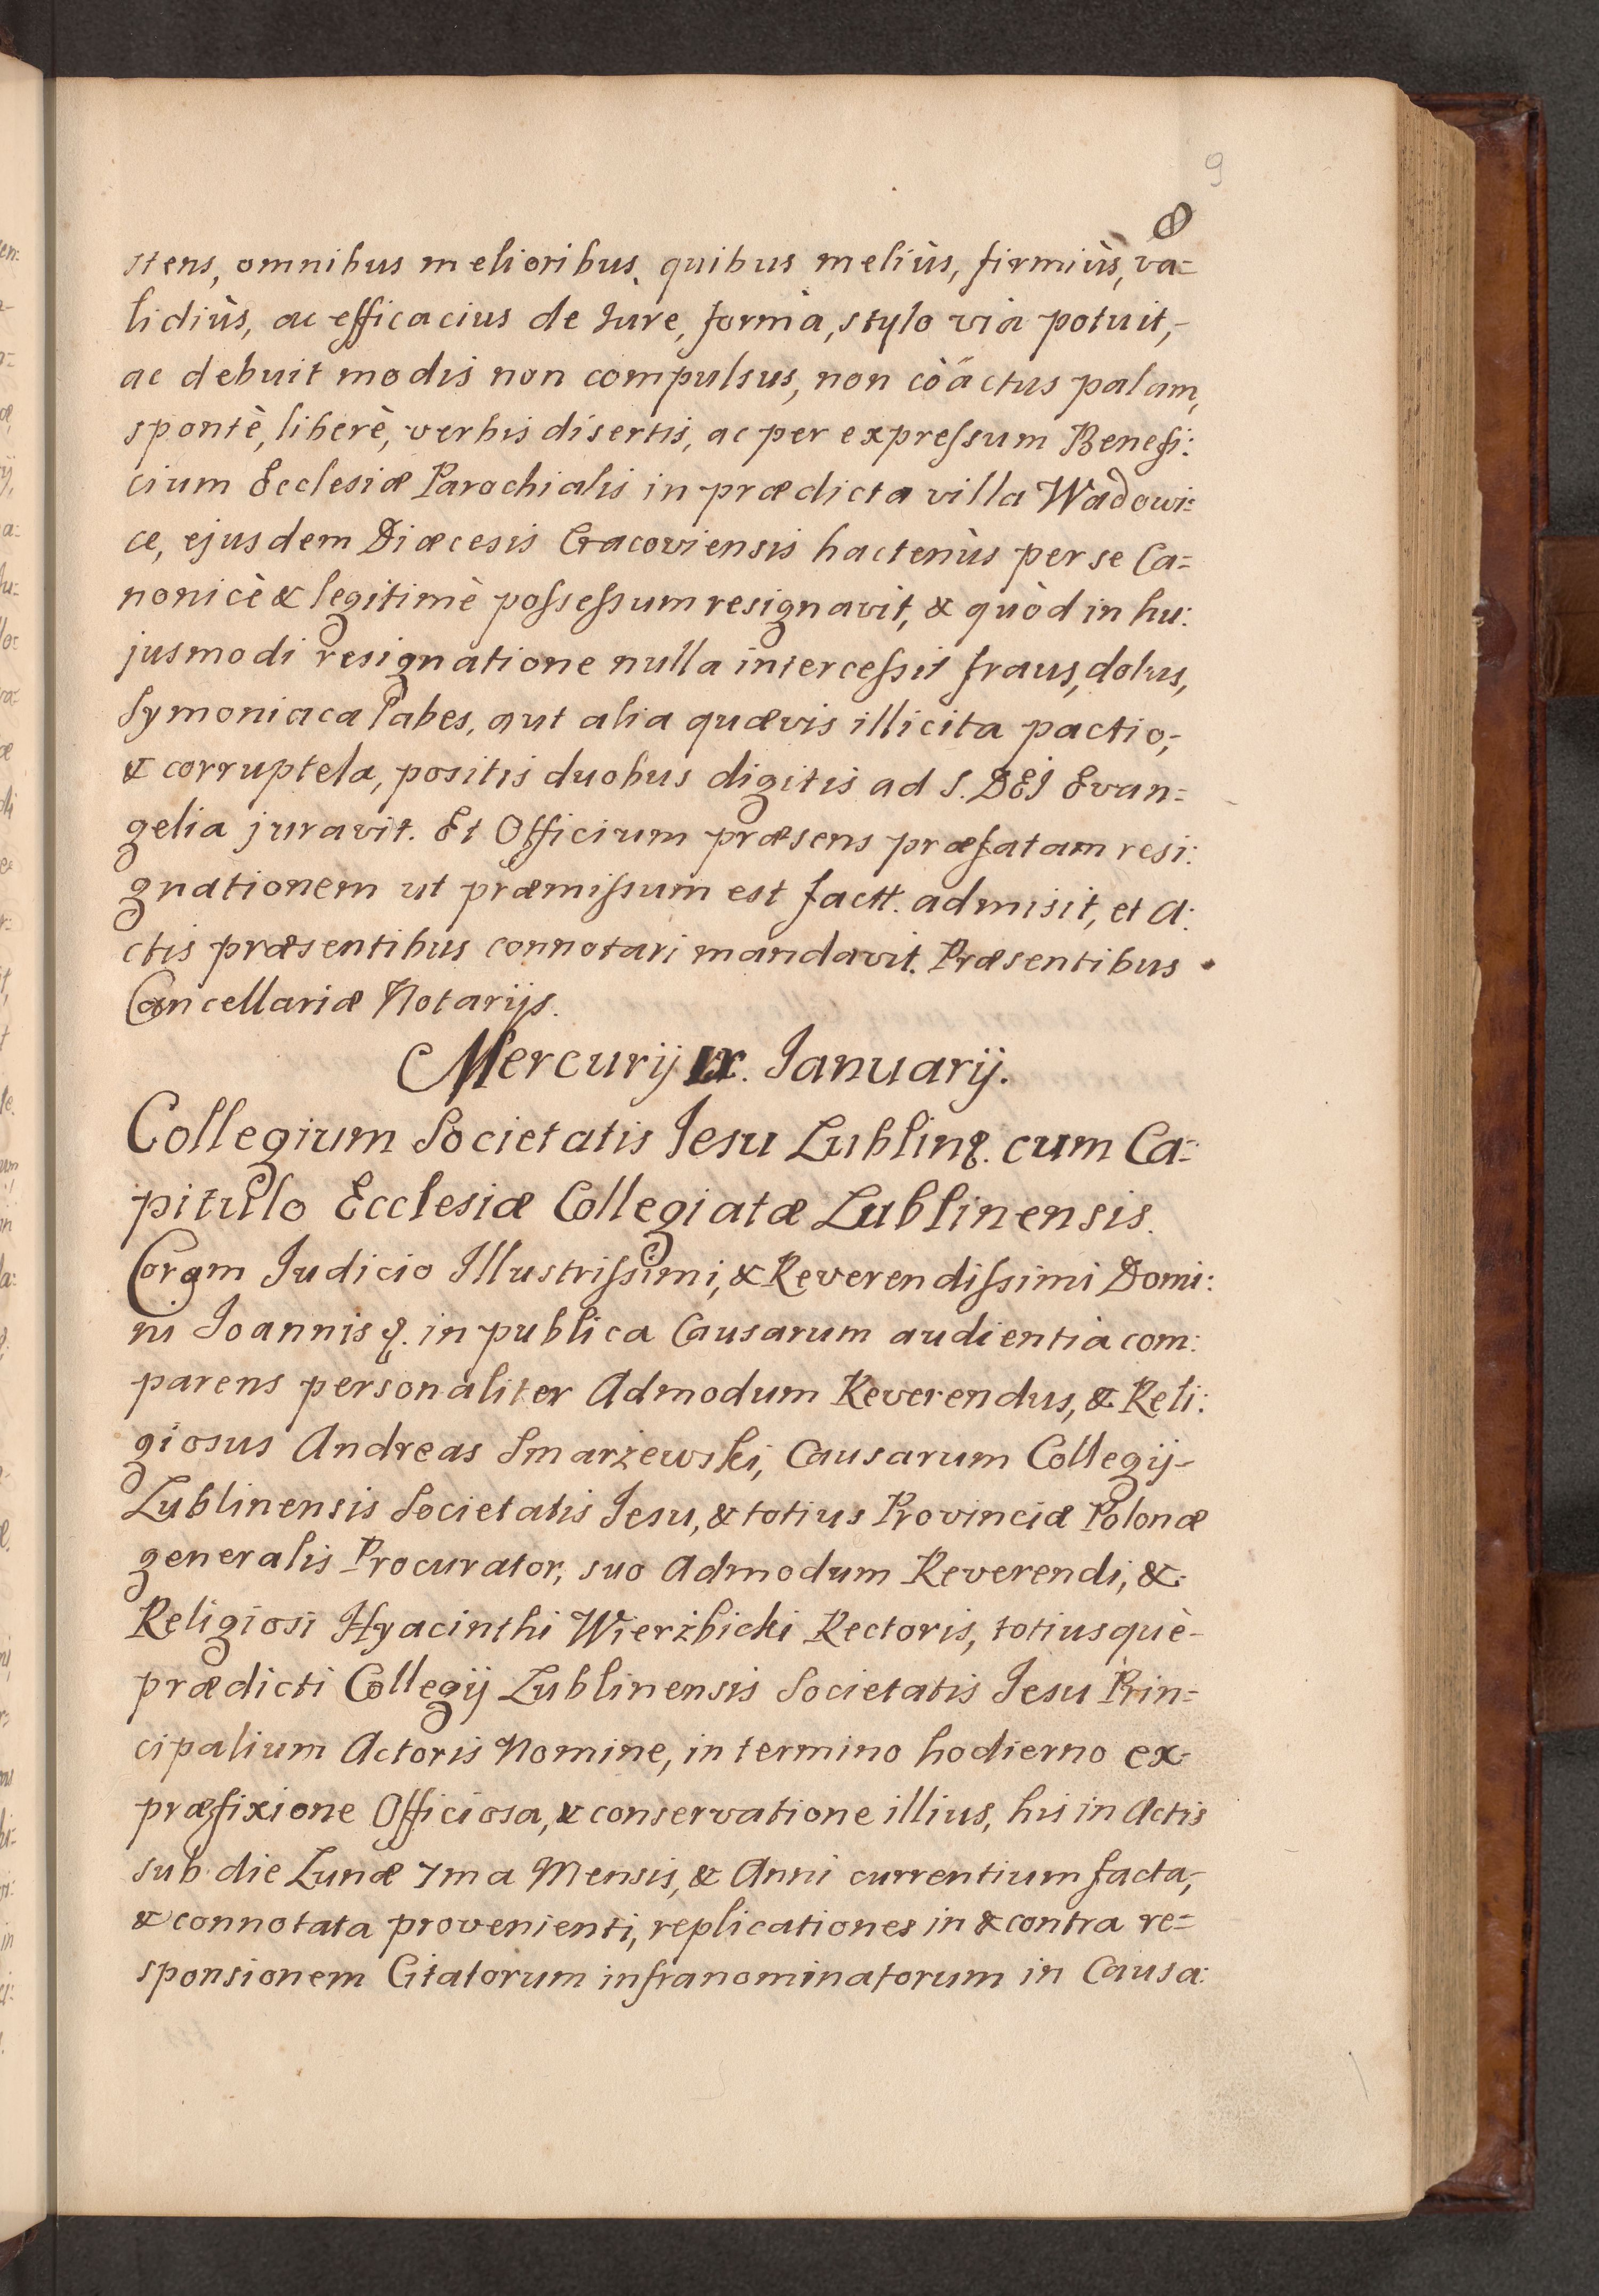 9
8
stens, omnibus melioribus, quibus meliùs, firmiùs, va=
lidiùs, ac efficacius de Iure, formà, stylo vià potuit,
ac debuit modis non compulsus, non còáctus palam,
spontè, liberè, verbis disertis, ac per expreſsum Benefi:
cium Ecclesiæ Parochialis in prædicta villa Wadowi:
ce, ejusdem Diæcesis Cracoviensis hactenùs per se Ca=
nonicè & legitimè poſseſsum resignavit, & quòd in hu:
jusmodi resignatione nulla interceſsit fraus, dolus,
Symoniaca labes, aut alia quævis illicita pactio,
& corruptela, positis duobus digitis ad S. DEI Evan=
gelia juravit. Et Officium præsens præfatam resi:
gnationem ut præmiſsum est factt. admisit, et A:
ctis præsentibus connotari mandavit. Præsentibus
Cancellariæ Notarijs.
Mercurij IX. Ianuarij.
Collegium Societatis Iesu Lublinȩ. cum Ca=
pitulo Ecclesiæ Collegiatæ Lublinensis.
Coram Iudicio Illustriſsimi, & Reverendiſsimi Domi:
ni Ioannis ȩ. in publica Causarum audientia com:
parens personaliter Admodum Reverendus, & Reli:
giosus Andreas Smarżewski, Causarum Collegij
Lublinensis Societatis Iesu, & totius Provinciæ Polonæ
generalis Procurator, suo Admodum Reverendi, &
Religiosi Hyacinthi Wierżbicki Rectoris, totiusquè
prædicti Collegij Lublinensis Societatis Iesu Prin=
cipalium Actoris Nomine, in termino hodierno ex
præfixione Officiosa, & conservatione illius, his in Actis
sub die Lunæ 7ma Mensis, & Anni currentium facta,
& connotata provenienti, replicationes in & contra re=
sponsionem Citatorum infranominatorum in Causa: